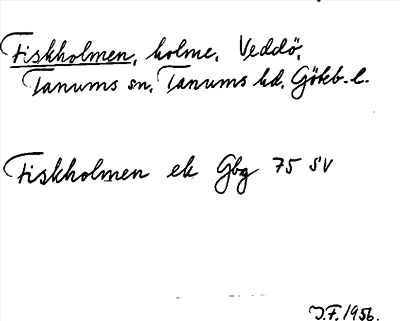 Fiskholmen, holme, Veddö,
Tanums sn, Tanums hd, Göteb. l.
Fiskholmen ek Gbg 75 SV
J.F. 1956.